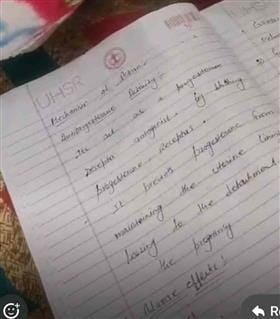 UHSR
Mechanism of Action:-
Antiprogesterone Activity:-
Its act as a progesterone
receptor antagonist by blocking
progesterone Receptors.
It prevents progesterone from
maintaining the uterine lining
leading to the detachment
the pregnancy
Adverse effects:
UHSR
R